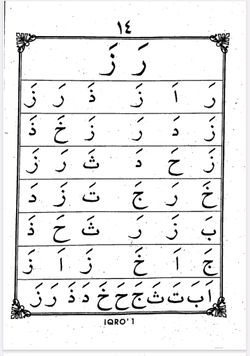 ١٤
رَ زَ
رَ اَ زَ ذَ رَ زَ
زَ دَ رَ زَ خَ ذَ
زَ حَ دَ ثَ رَ زَ
خَ رَ جَ تَ زَ دَ
بَ زَ رَ ثَ حَ ذَ
جَ اَ خَ زَ اَ زَ
اَ بَ تَ ثَ جَ حَ خَ دَ ذَ رَ زَ
IQRO' 1